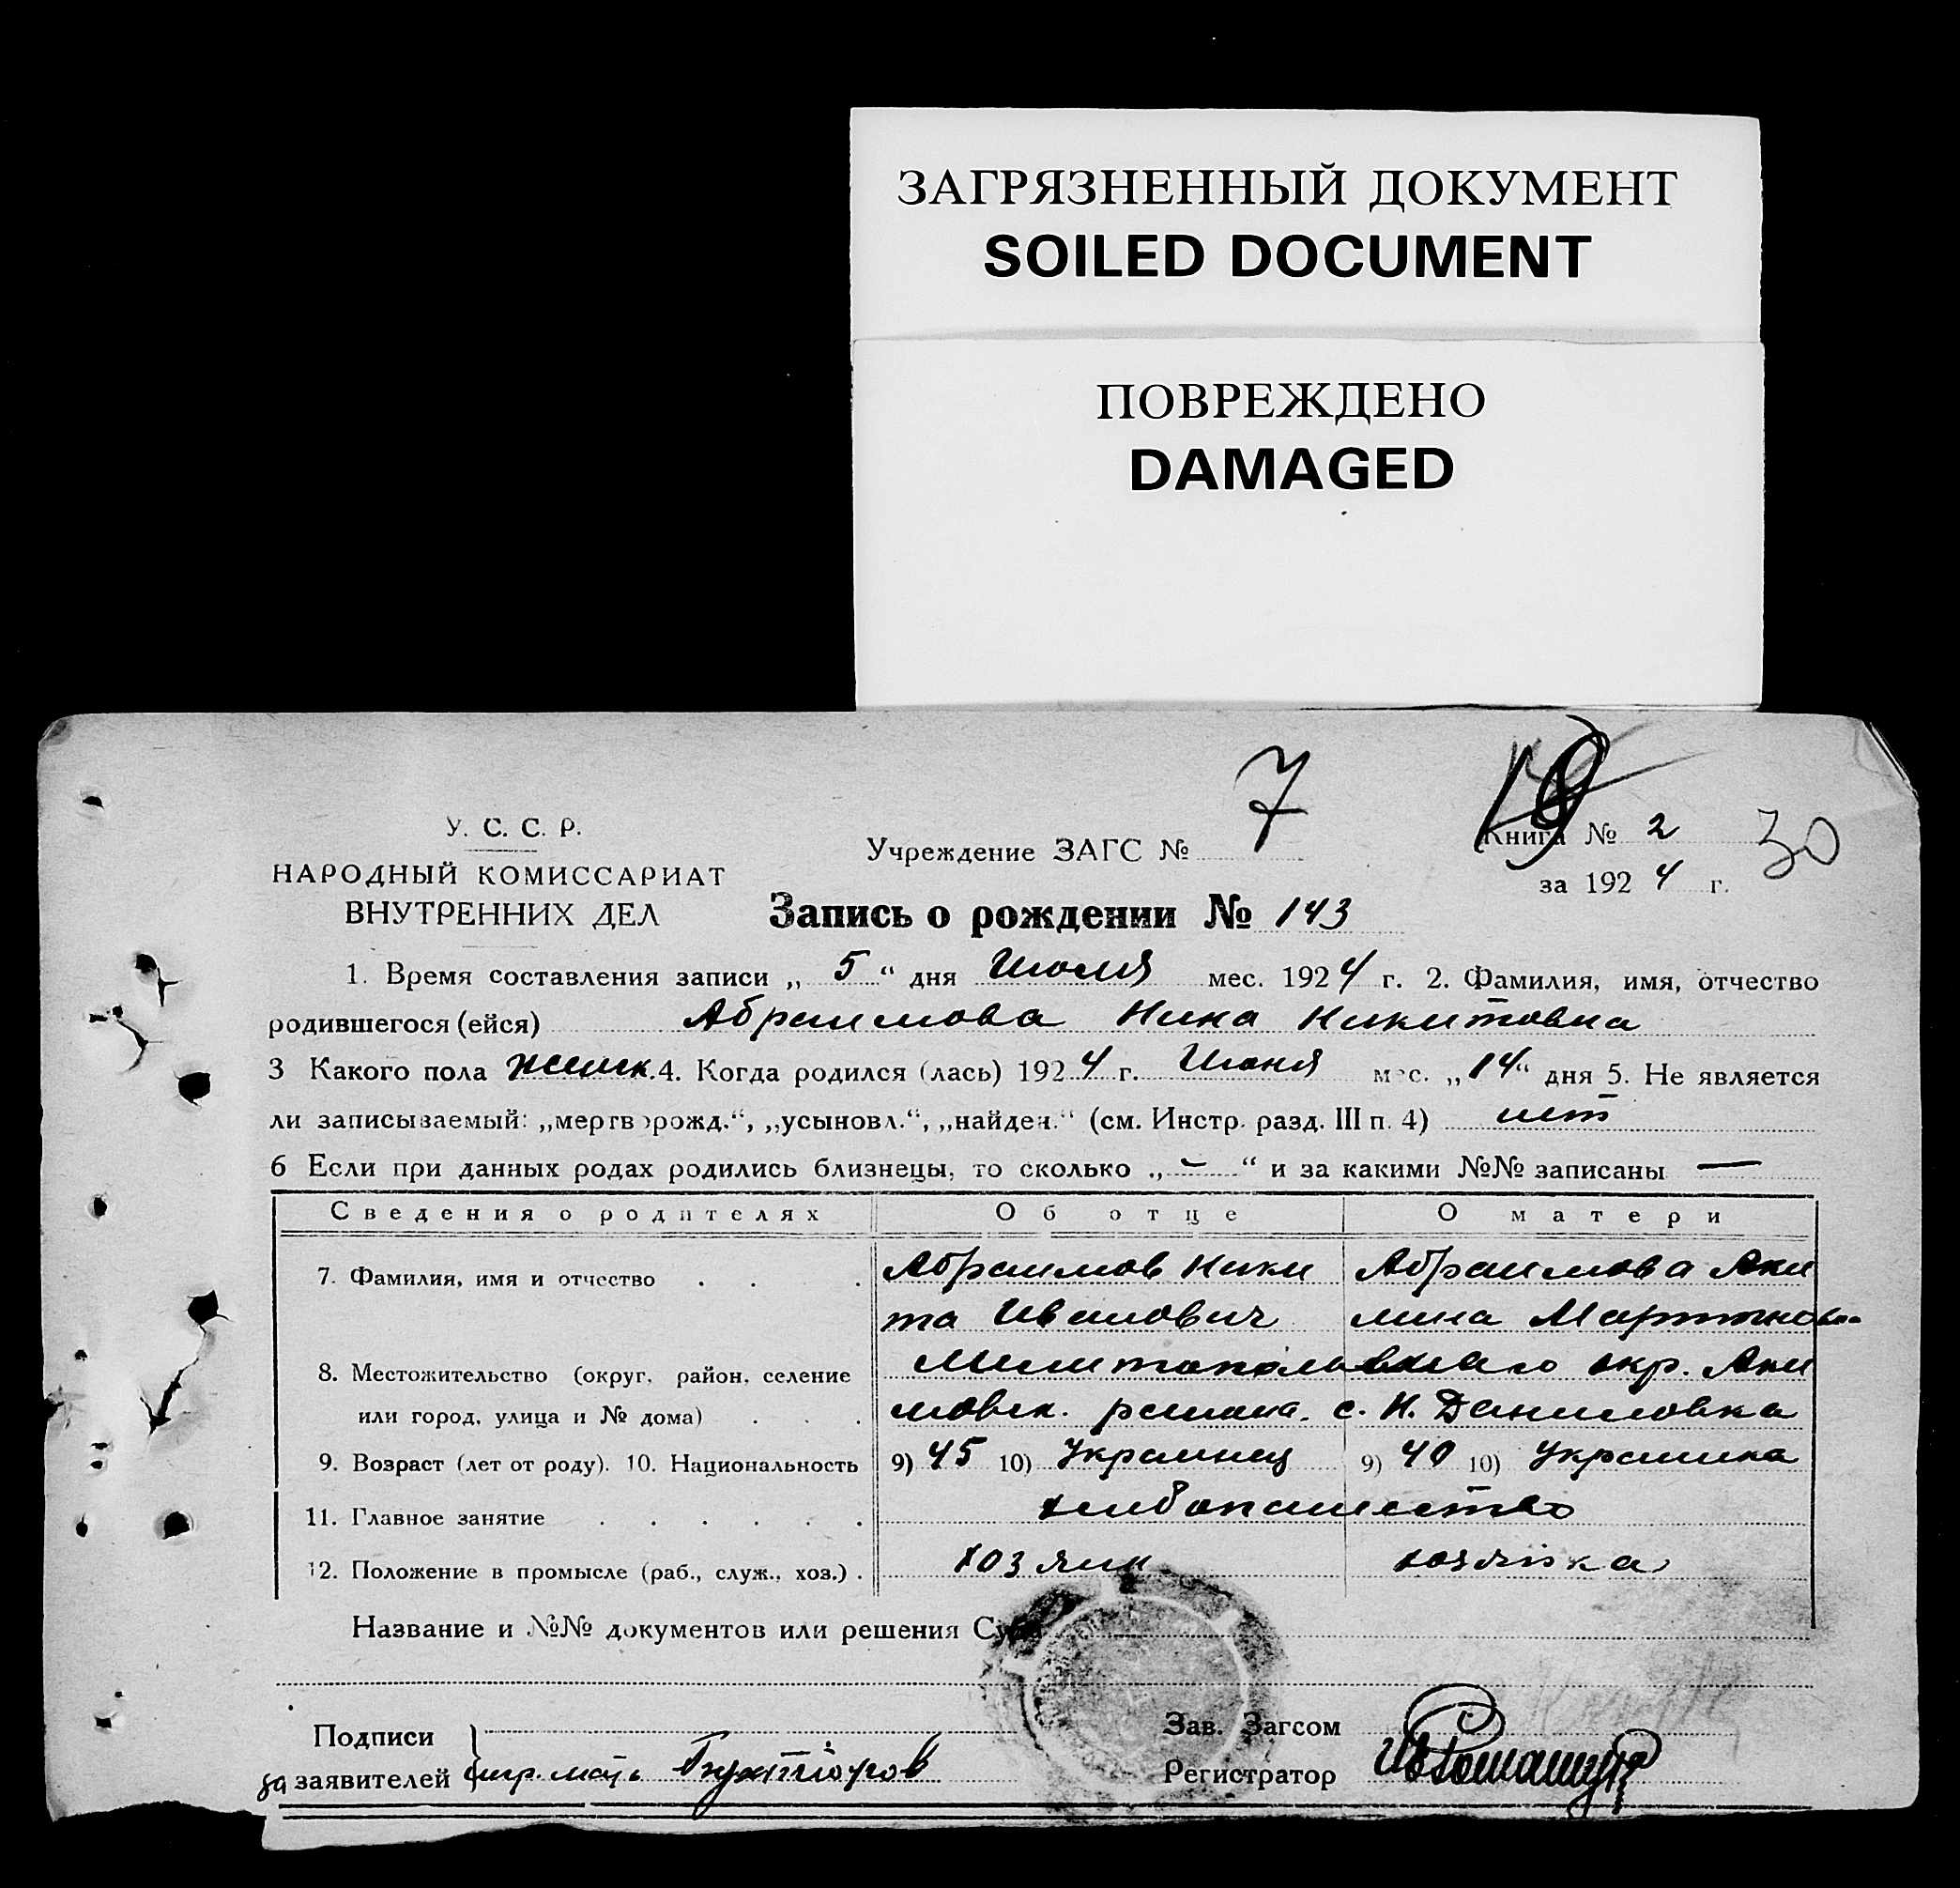 ЗАГРЯЗНЕННЫЙ ДОКУМЕНТ
SOILED DOCUMENT
ПОВРЕЖДЕНО
DAMAGED
У. С. С. Р.
НАРОДНЫЙ КОМИССАРИАТ
ВНУТРЕННИХ ДЕЛ
Учреждение ЗАГС № 7
Книга № 2
30
за 1924 г.
Запись о рождении № 143
1. Время составления записи „ 5 “ дня Июля мес. 1924 г. 2. Фамилия, имя, отчество
родившегося (ейся) Абраимова Нина Никитовна
3 Какого пола женск. 4. Когда родился (лась) 1924 г. Июня мес. „14“ дня 5. Не является
ли записываемый: „мертворожд.“, „усыновл.“, „найден.“ (см. Инстр. разд. III п. 4) нет
6 Если при данных родах родились близнецы, то сколько „ - “ и за какими №№ записаны —
Сведения о родителях Об отце О матери
7. Фамилия, имя и отчество . . . Абраимов Ники Абраимова Аки
та Иванович лина Мартыновна
8. Местожительство (округ, район, селение Мелитопольского окр. Аки
или город, улица и № дома) . . . мовск. района. с. Н. Даниловка
9. Возраст (лет от роду). 10. Национальность 9) 45 10) Украинец 9) 40 10) Украинка
11. Главное занятие . . . . . . хлебопашество
12. Положение в промысле (раб., служ., хоз.) . хозяин хозяйка
Название и №№ документов или решения Суда
Подписи
за заявителей
Зав. Загсом
Регистратор